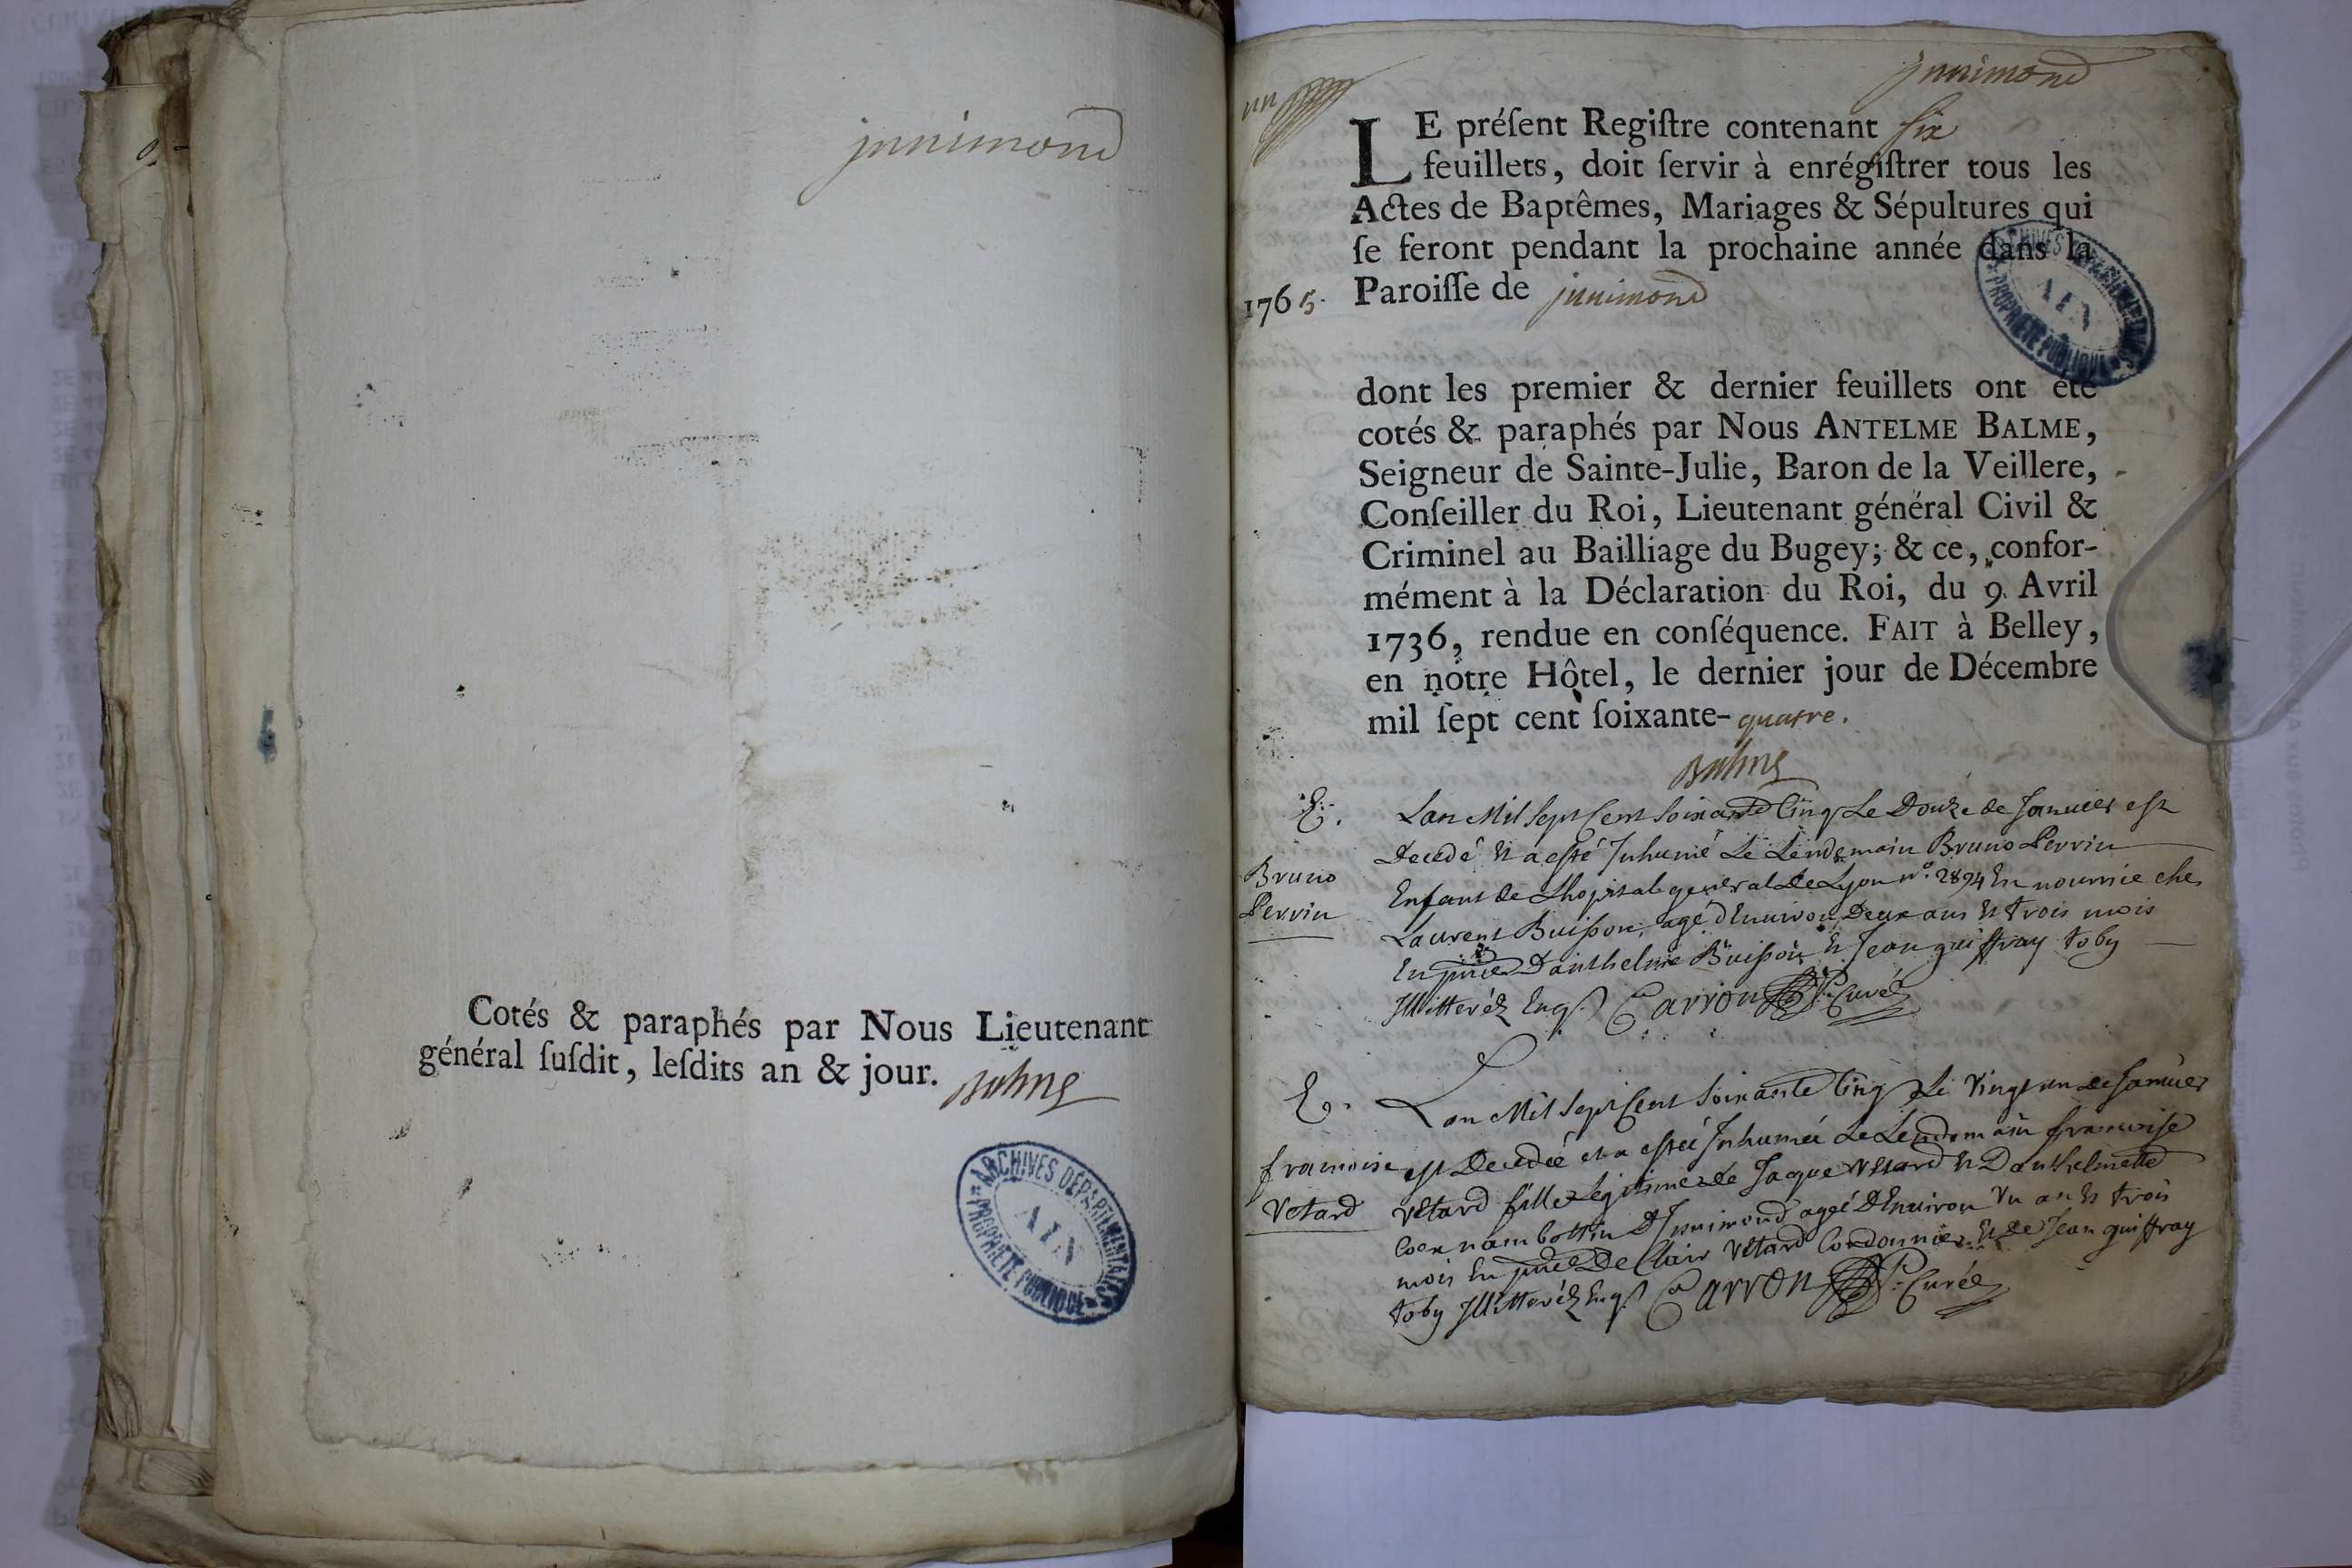 jnnimond
Cotés & paraphés par Nous Lieutenant
général ſuſdit, leſdits an & jour. Balme
ARCHIVES DÉPARTEMENTALES
AIN
PROPRIÉTÉ PUBLIQUE
un
jnnimond
LE préſent Regiſtre contenant six
feuillets, doit ſervir à enrégiſtrer tous les
Actes de Baptêmes, Mariages & Sépultures qui
ſe feront pendant la prochaine année dans la
1765. Paroiſſe de jnnimond
ARCHIVES DÉPARTEMENTALES
AIN
PROPRIÉTÉ PUBLIQUE
dont les premier & dernier feuillets ont été
cotés & paraphés par Nous ANTELME BALME,
Seigneur de Sainte-Julie, Baron de la Veillere,
Conſeiller du Roi, Lieutenant général Civil &
Criminel au Bailliage du Bugey; & ce, confor-
mément à la Déclaration du Roi, du 9. Avril
1736, rendue en conſéquence. FAIT à Belley,
en notre Hôtel, le dernier jour de Décembre
mil ſept cent ſoixante-quatre.
Balme
E. Lan Mil Sept Cent Soixante Cinq Le Douze de Januier est
Decedé Et a esté Inhumé Le Lendemain Bruno Perrin
Bruno
Perrin
Enfant de Lhopital general de Lyon n°. 2894 En nourrice ches
Laurent Buisson, agé dEnuiron Deux ans Et trois mois
En pnce Danthelme Buisson Et Jean guiffray toby
Illitteréz Enqs Carron Curé
E. Lan Mil Sept Cent Soixante Cinq Le Vingt un de Januier
francoise
Vetard
est Decedée et a estée Inhumée Le Lendemain francoise
Vetard fille Legitime de Jaque Vetard Et Danthelmette
nambottin DInnimond agée DEnuiron Vn an Et trois
mois En pnce De Clair Vetard Cordonnier Et de Jean guiffray
toby Illitteréz Enqs Carron Curé